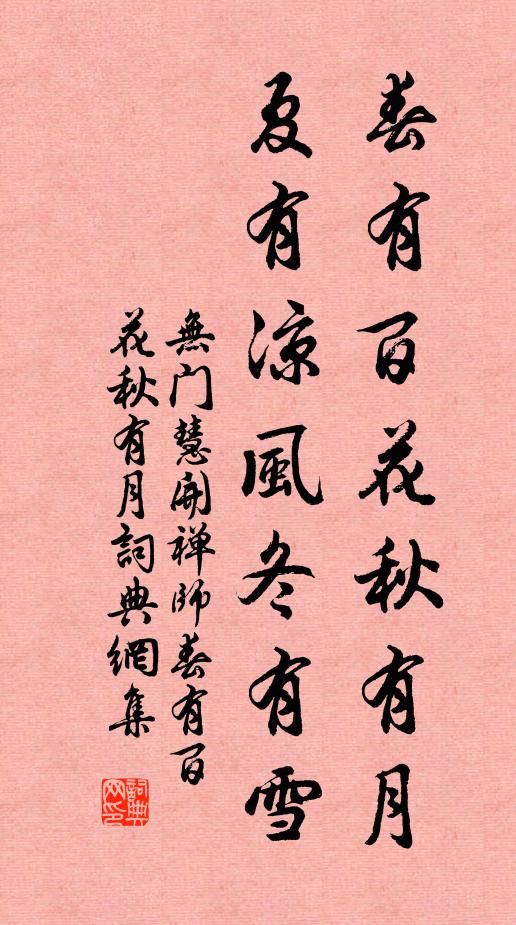 春有百花秋有月
夏有涼風冬有雪
無门慧開禅師春有百
花秋有月詞典網集
詞典
网印